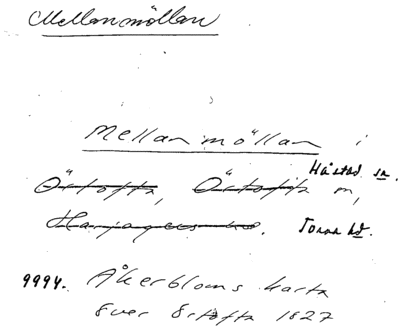 Mellanmöllan
Mellanmöllan i
Håstad sn.
Örtofta, Örtofta sn,
Harjagers hd. Torna hd.
9994. Åkerbloms karta
över Örtofta 1827